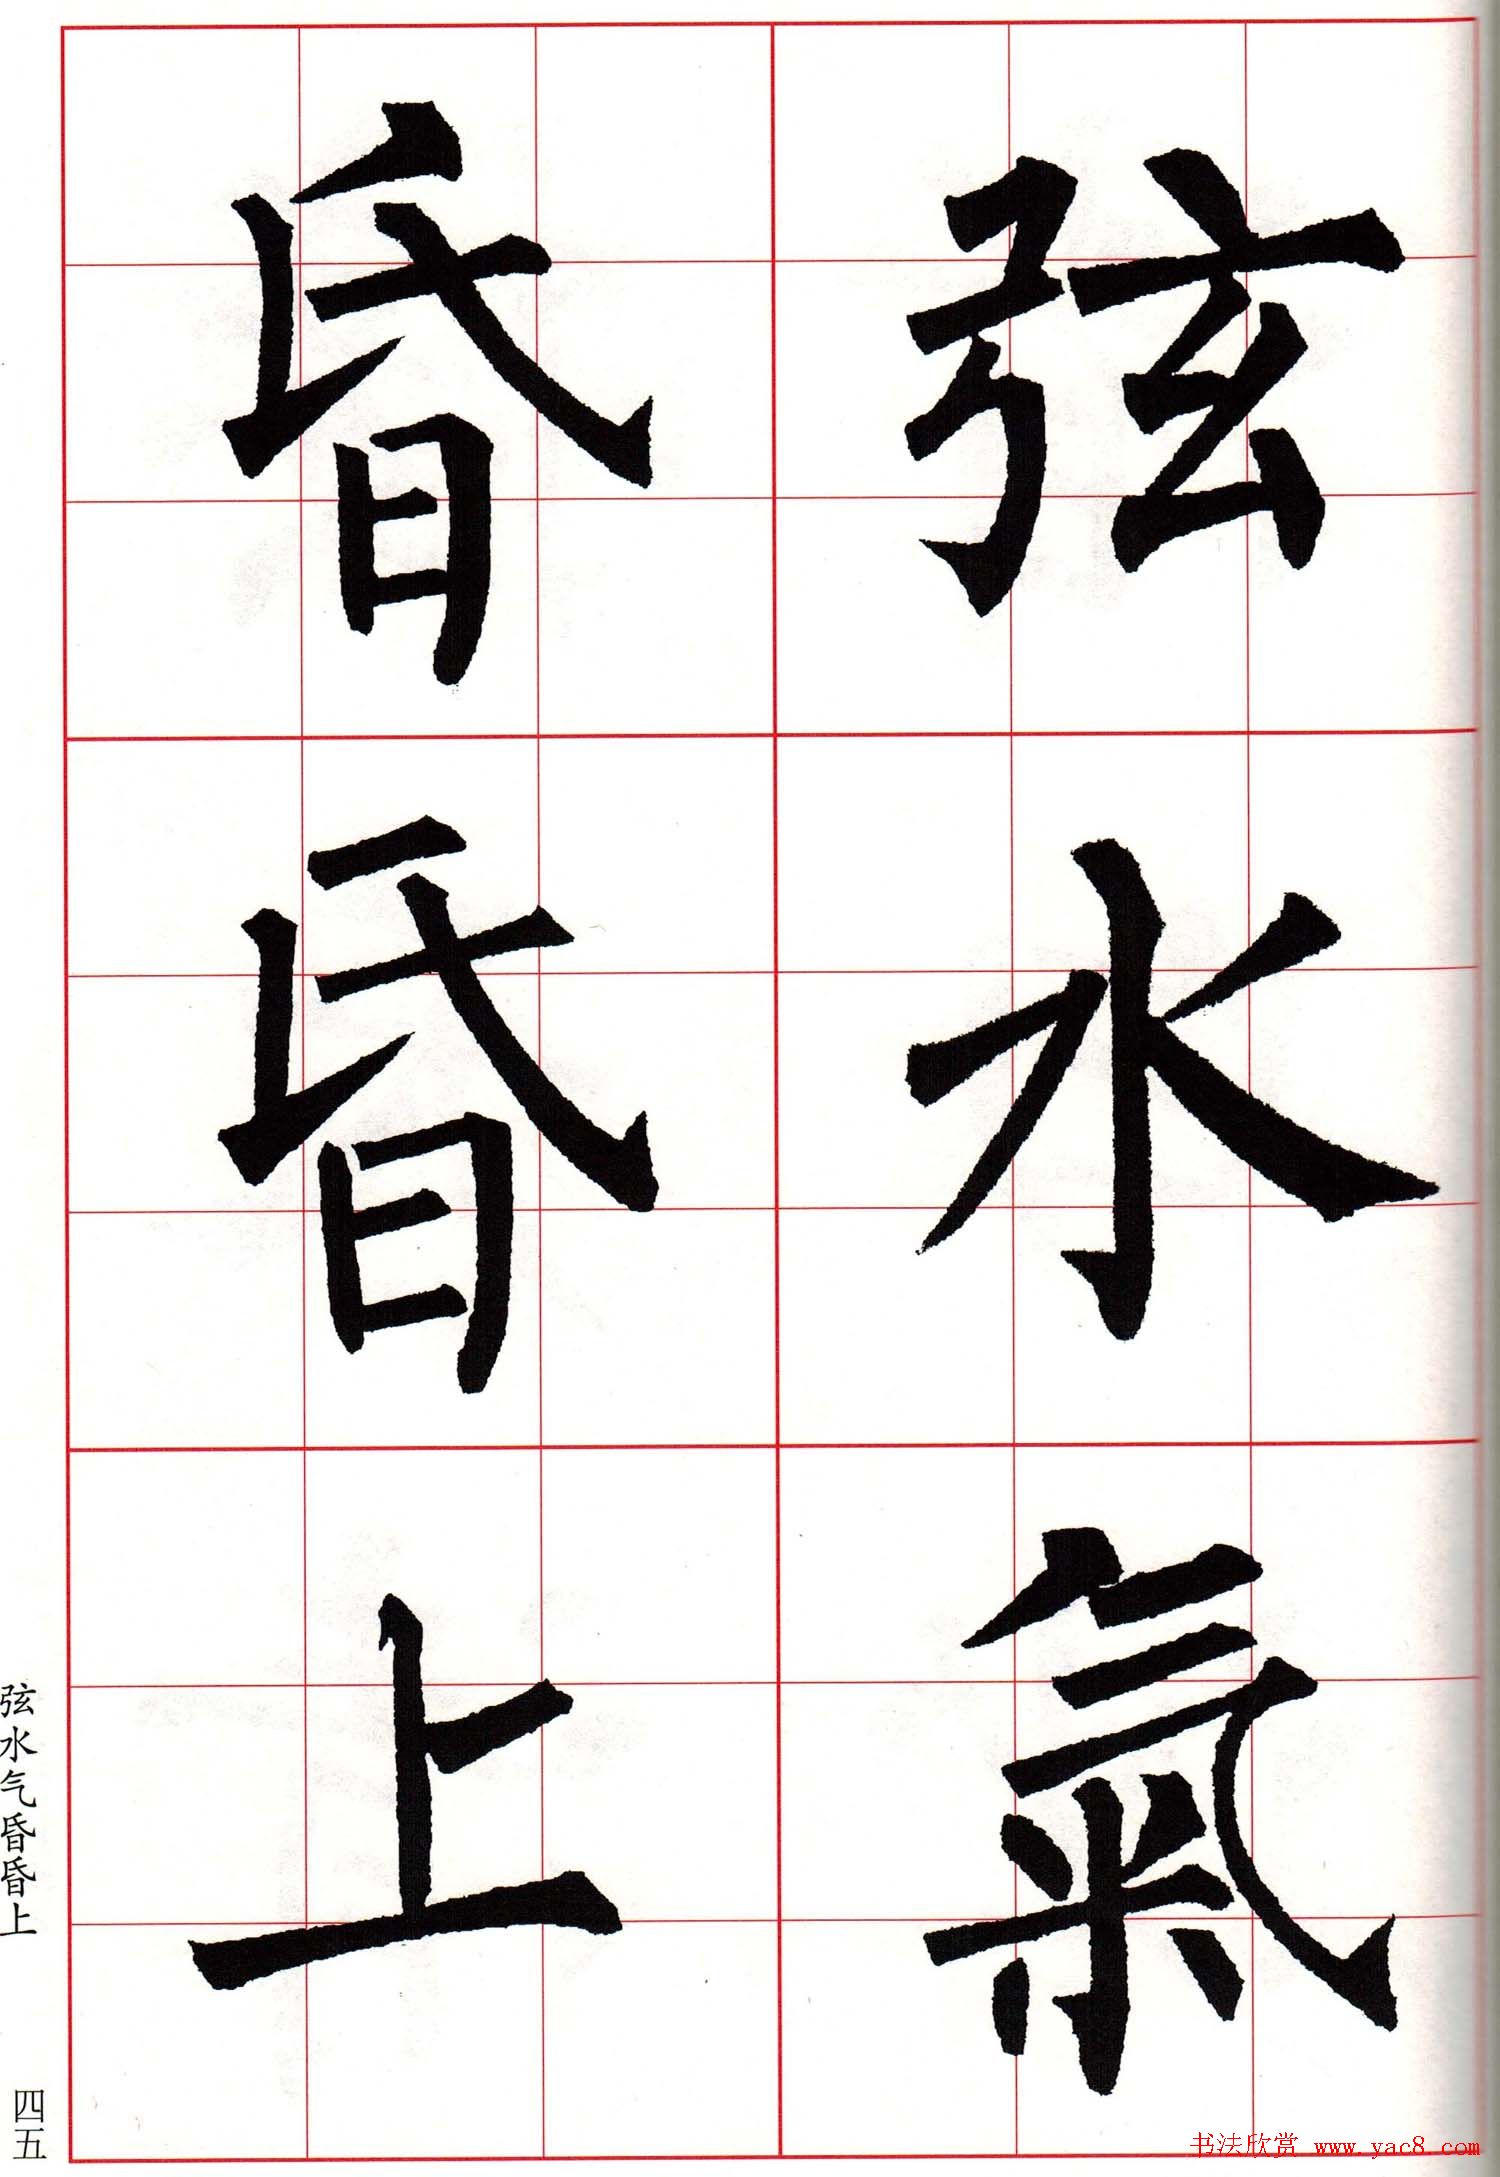 弦水氣
昏昏上
弦水气昏昏上
四五
书法欣赏 www.yac8.com